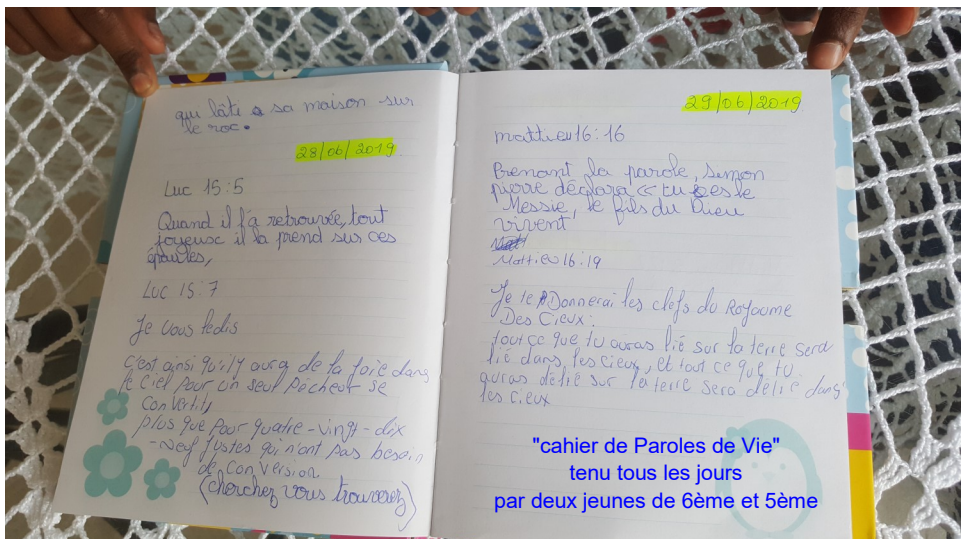 qui bâte sa maison sur
le roc.
28/06/2019
Luc 15:5
Quand il l'a retrouvée, tout
joyeuse il la prend sur ces
épaules,
Luc 15:7
Je vous ledis
c'est ainsi qu'il y aura de la joie dans
le ciel pour un seul pécheur se
convertit,
plus que pour quatre-vingt-dix
-neuf justes qui n'ont pas besoin
de conversion.
(cherchez vous trouverez)
29/06/2019
mattieu 16:16
Prenant la parole, Simon
pierre déclara « tu es le
Messie, le fils du Dieu
vivent
Mattieu 16:19
Je te Donnerai les clefs du Royaume
Des Cieux:
tout ce que tu auras lié sur la terre sera
lié dans les cieux, et tout ce que tu
auras délié sur la terre sera délié dans
les cieux
"cahier de Paroles de Vie"
tenu tous les jours
par deux jeunes de 6ème et 5ème